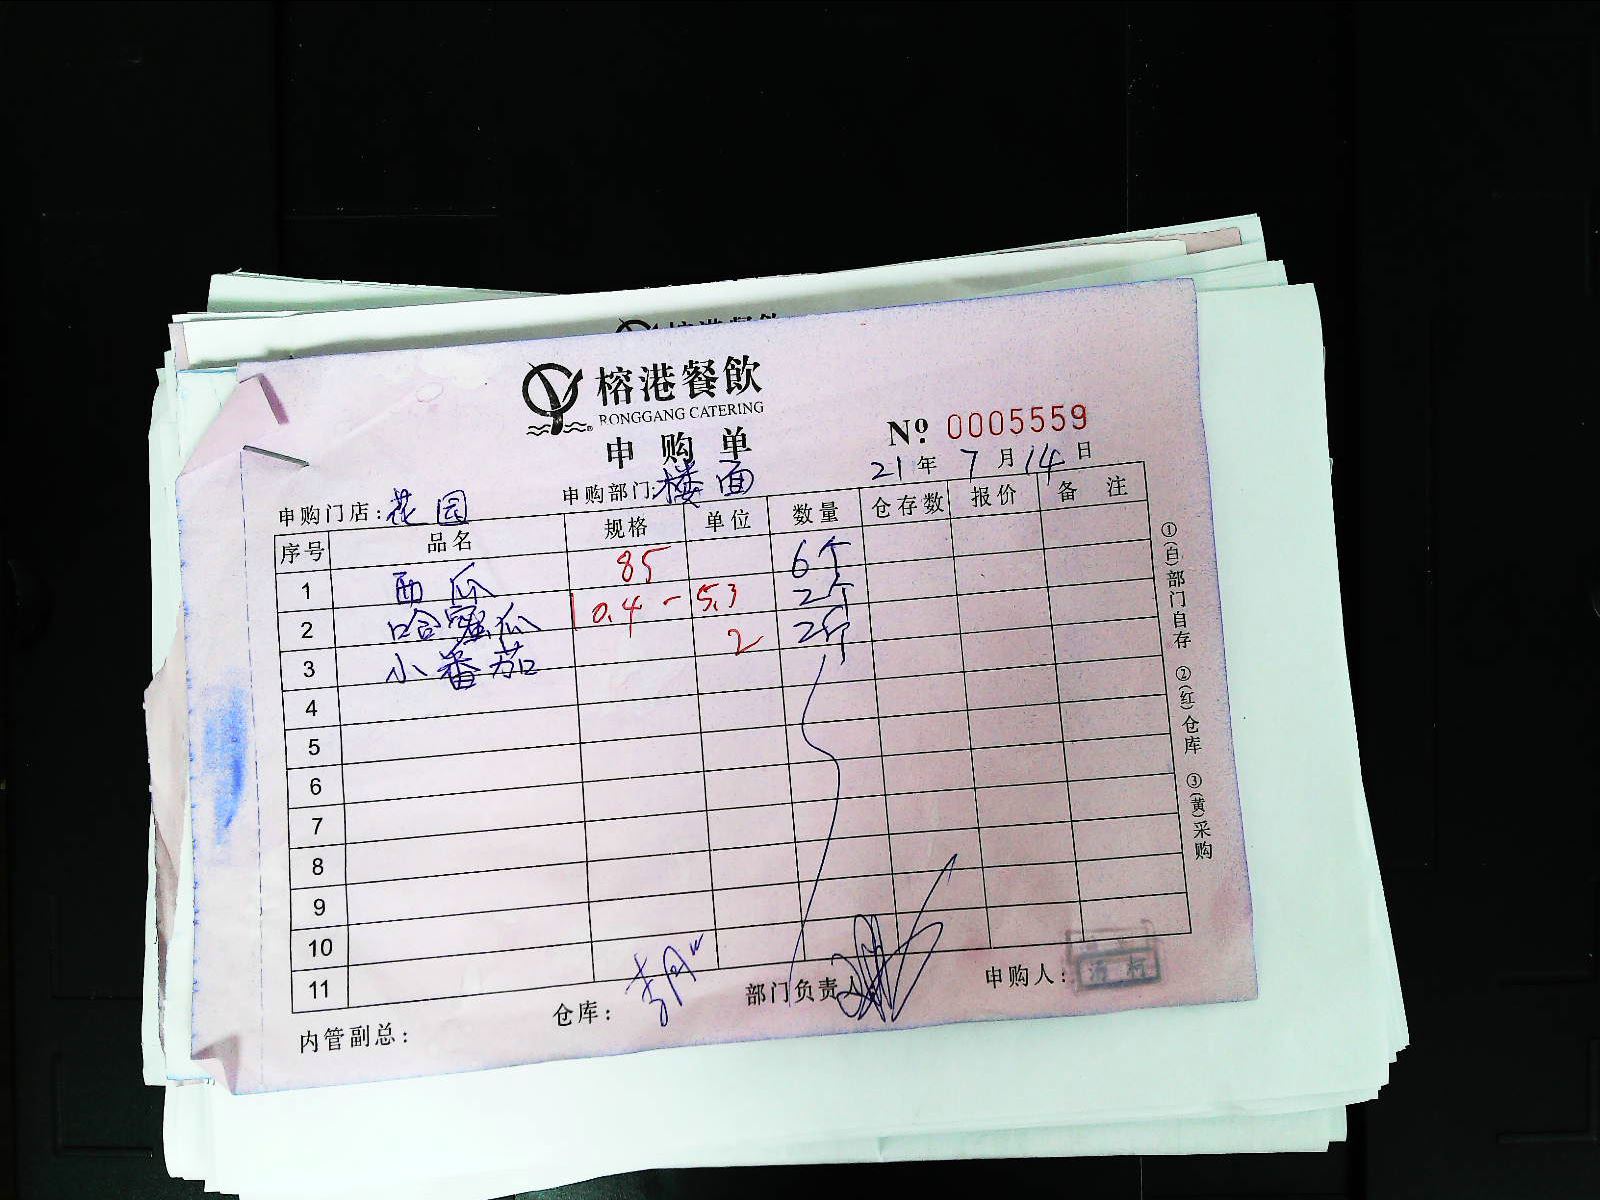 榕港餐飲
榕港餐飲
RONGGANG CATERING
申购单
№ 0005559
21年7月14日
申购门店:花园 申购部门:楼面
序号 品名 规格 单位 数量 仓存数 报价 备注
1 西瓜 85 6个
2 哈蜜瓜 10.4 - 5.3 2个
3 小番茄 2 2斤
4
5
6
7
8
9
10
11
①(白)部门自存 ②(红)仓库 ③(黄)采购
内管副总: 仓库: 部门负责人 申购人: